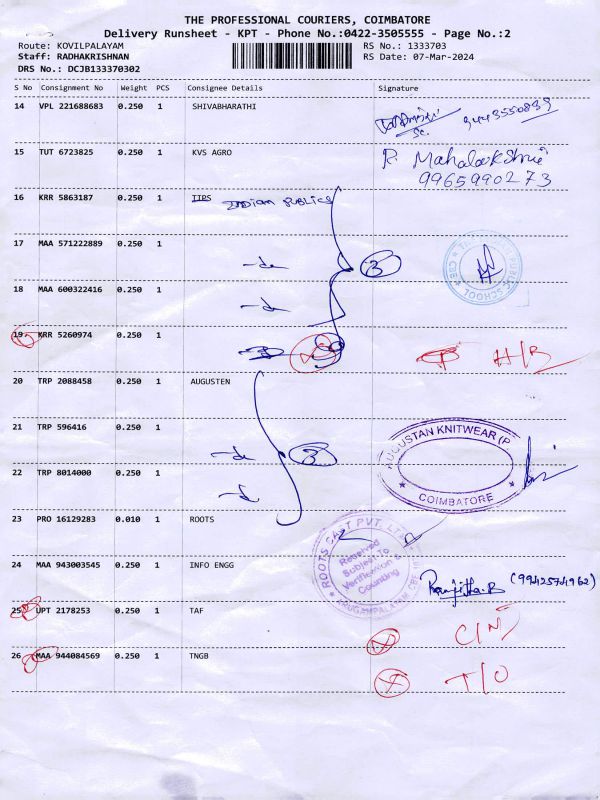 THE PROFESSIONAL COURIERS, COIMBATORE
Delivery Runsheet - KPT - Phone No.:0422-3505555 - Page No.:2
Route: KOVILPALAYAM RS No.: 1333703
Staff: RADHAKRISHNAN RS Date: 07-Mar-2024
DRS No.: DCJB133370302
S No Consignment No Weight PCS Consignee Details Signature
14 VPL 221688683 0.250 1 SHIVABHARATHI
9443550839
15 TUT 6723825 0.250 1 KVS AGRO R. Mahalakshmi
9965990273
16 KRR 5863187 0.250 1 IIPS Indian Public
17 MAA 571222889 0.250 1
3
18 MAA 600322416 0.250 1
19 KRR 5260974 0.250 1 H/B
20 TRP 2088458 0.250 1 AUGUSTEN
21 TRP 596416 0.250 1
3
KNITWEAR (P
COIMBATORE
22 TRP 8014000 0.250 1
23 PRO 16129283 0.010 1 ROOTS
ROOTS CAST PVT. LTD
Received
Subject To
Verification &
Counting
24 MAA 943003545 0.250 1 INFO ENGG Ranjitha.R (9942574962)
25 UPT 2178253 0.250 1 TAF C/N
26 MAA 944084569 0.250 1 TNGB T/O